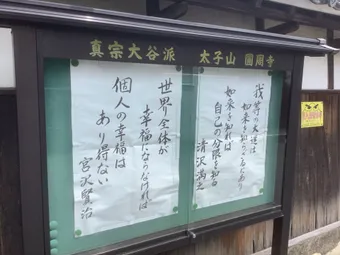 真宗大谷派　太子山　圓周寺
我等の大迷は
如来を知らざるにあり
如来を知れば
自己の分限を知る
清沢満之
世界全体が
幸福にならなければ
個人の幸福は
あり得ない
宮沢賢治